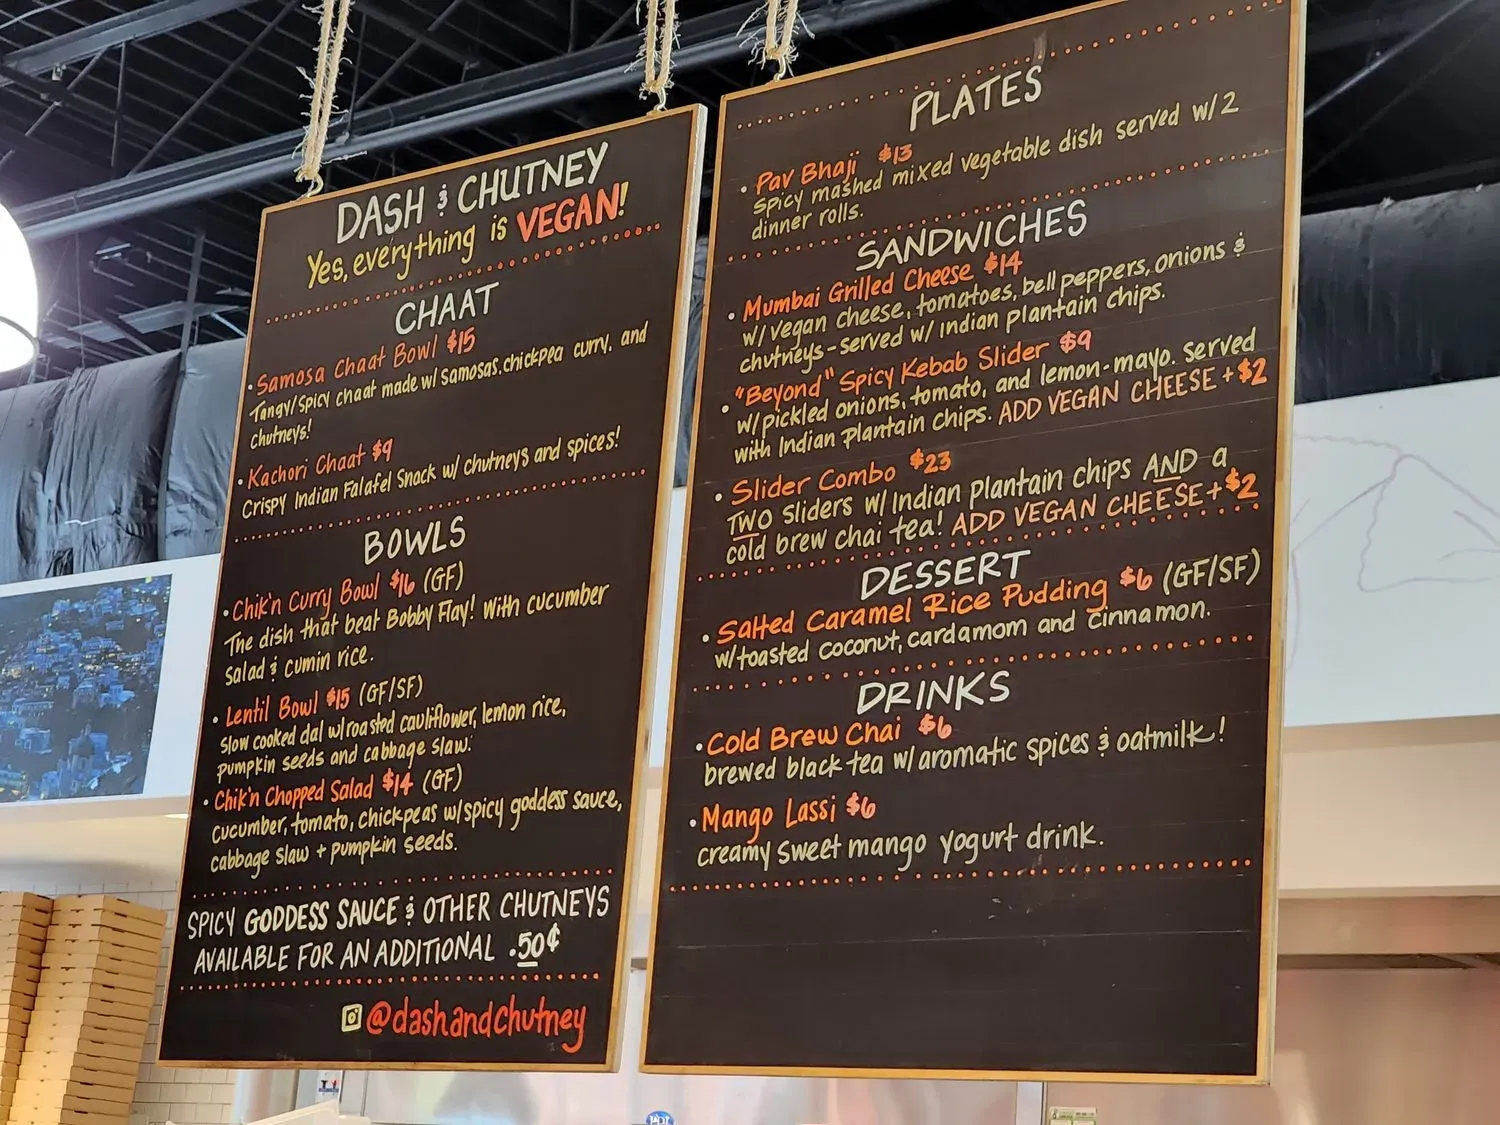 DASH & CHUTNEY
Yes, everything is VEGAN!
CHAAT
• Samosa Chaat Bowl $15
Tangy/Spicy chaat made w/ samosas, chickpea curry, and
chutneys!
• Kachori Chaat $9
Crispy Indian Falafel Snack w/ chutneys and spices!
BOWLS
• Chik'n Curry Bowl $16 (GF)
The dish that beat Bobby Flay! With cucumber
Salad & cumin rice.
• Lentil Bowl $15 (GF/SF)
Slow cooked dal w/roasted cauliflower, lemon rice,
pumpkin seeds and cabbage slaw.
• Chik'n Chopped Salad $14 (GF)
cucumber, tomato, chickpeas w/spicy goddess sauce,
cabbage slaw + pumpkin seeds.
SPICY GODDESS SAUCE & OTHER CHUTNEYS
AVAILABLE FOR AN ADDITIONAL .50¢
@dashandchutney
PLATES
• Pav Bhaji $13
Spicy mashed mixed vegetable dish served w/2
dinner rolls.
SANDWICHES
• Mumbai Grilled Cheese $14
w/ vegan cheese, tomatoes, bell peppers, onions &
chutneys - served w/ Indian plantain chips.
• "Beyond" Spicy Kebab Slider $9
w/pickled onions, tomato, and lemon-mayo. served
with Indian plantain chips. ADD VEGAN CHEESE + $2
• Slider Combo $23
TWO Sliders w/ Indian plantain chips AND a
cold brew chai tea! ADD VEGAN CHEESE + $2
DESSERT
• Salted Caramel Rice Pudding $6 (GF/SF)
w/toasted coconut, cardamom and cinnamon.
DRINKS
• Cold Brew Chai $6
brewed black tea w/aromatic spices & oatmilk!
• Mango Lassi $6
creamy sweet mango yogurt drink.